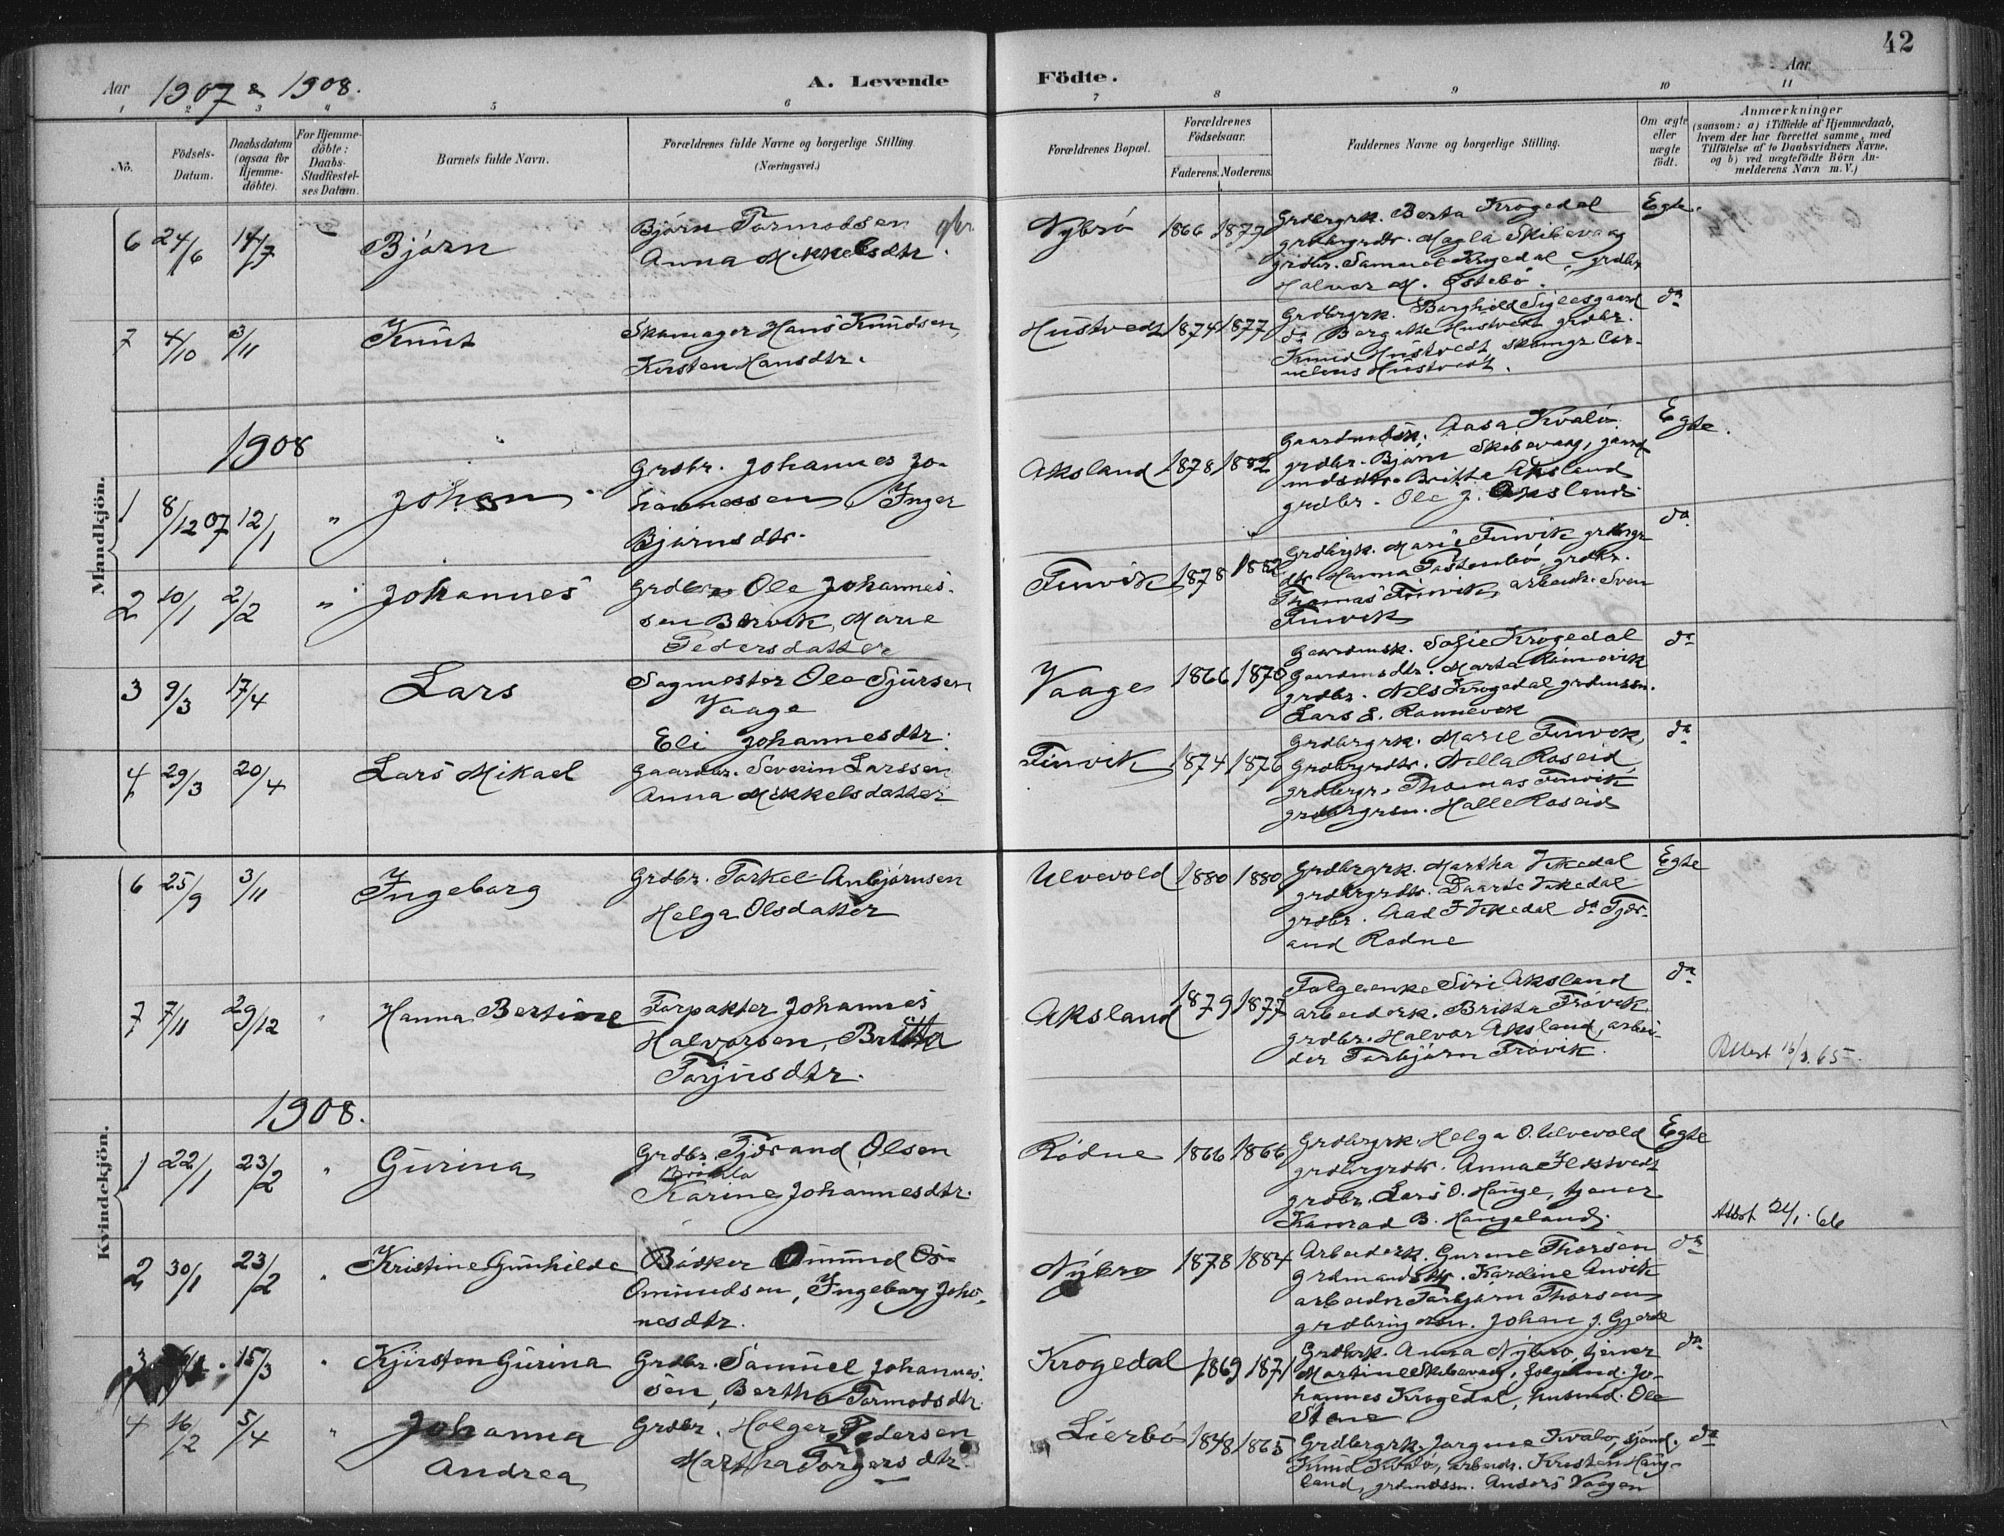 42
Aar 1907 & 1908.
A. Levende Födte.
Aar
1 2 3 4 5 6 7 8 9 10 11
No.
Födsels-Datum.
Daabsdatum (ogsaa for Hjemme-döbte).
For Hjemme-döbte: Daabs-Stadfæstel-ses Datum.
Barnets fulde Navn.
Forældrenes fulde Navne og borgerlige Stilling.
(Næringsvei.)
Forældrenes Bopæl.
Forældrenes Födselsaar.
Faderens. Moderens.
Faddernes Navne og borgerlige Stilling.
Om ægte eller uægte födt.
Anmærkninger
(saasom: a) i Tilfælde af Hjemmedaab,
hvem der har forrettet samme, med
Tilföielse af to Daabsvidners Navne,
og b) ved uægtefödte Börn An-
melderens Navn m. V.)
Mandkjön.
6 24/6 14/7 Bjørn
Bjørn Tormodsen gbr.
Anna Mikkelsdtr.
Nybrö 1866 1877
Grdbrgrk. Berta Krogedal
grdbrgrdtr. Magla Skibevaag
grdbr. Samuel Krogedal, grdbr
Halvor M. Östebö.
Egte.
7 4/10 3/11 Knut
Skomager Hans Knudsen
Kirsten Hansdtr.
Hustvedt 1874 1877
Grdbrgrk. Borghild
do Hustvedt grdbr.
Knud Hustvedt skomgr. Cor-
nelius Hustvedt.
do
1908
1 8/12 07 12/1 " Johan
Grdbr. Johannes Jo-
hannessen Inger
Bjørnsdtr.
Aksland 1878 1882
Aasa Kvalö
grdbr. Bjørn Skibevaag, gaard
mdsdtr. Britta Aksland
grdbr. Ole J. Aksland.
Egte.
2 10/1 2/2 " Johannes
Grdbr. Ole Johannes-
sen Marie
Pedersdatter
Tinvik 1878 1882
Grdbrgk. Marie Tinvik grdbrgr
dtr. Hanna grdbr.
Thomas Tinvik, arbeidr. Sven
Tinvik
do
3 9/3 17/4 Lars
Sagmester Ole Sjursen
Vaage
Eli Johannesdtr.
Vaage 1866 1870
Gaardmsk. Sofie Krogedal
Gaardmsdtr. Marta Rönnevik
grdbr. Nils Krogedal grdmssn.
Lars L. Rønnevik
do
4 29/3 20/4 Lars Mikael
Gaardbr. Severin Larssen
Anna Mikkelsdatter
Tinvik 1874 1876
Grdbrgrk. Marie Tinvik,
Grdbrgrdtr. Nilla Roseid,
grdbrgr. Thomas Tinvik
grdbrgrsn. Halle Roseid
do
Kvindekjön.
6 25/9 3/11 Ingeborg
Grdbr. Torkel Anbjørnsen
Helga Olsdatter
Ulvevold 1880 1880
Grdbrgrk. Martha Vikedal
grdbrgrdtr. Vikedal
grdbr. Aad F Vikedal do Tjer-
and Rødne
Egte
7 7/11 29/12 " Hanna Bertine
Forpakter Johannes
Halvorsen, Britta
Torjusdtr.
Aksland 1879 1877
Folgeenke Siri Aksland
arbeiderk. Britta Trovik,
grdbr. Halvor Aksland, arbei-
der Torbjørn Trovik.
do
Attest 16/3. 65
1908.
1 22/1 23/2 " Gurina
Grdbr. Tjerand Olsen
Britta
Karine Johannesdtr.
Rödne 1866 1866
Grdbrgrk. Helga O. Ulvevold
grdbrgrdtr. Anna
grdbr. Lars O. Hauge, tjener
Konrad B. Haugeland.
Egte
Attest 24/1. 66
2 30/1 23/2 " Kristine Gunhilde
Bödker Omund
Omundsen, Ingeborg Joha-
nesdtr.
Nybro 1878 1884
Arbeiderk. Gurine Thorsen
grdmandsdtr. Karoline Anvik
arbeider Torbjørn Thorsen
Johan J. Gjerde
do
3 15/3 " Kjirsten Gurina
Grdbr. Samuel Johannes-
sen, Bertha Tormodsdtr
Krogedal 1869 1871
Grdbrk. Anna Nybro, tjener
Martine Skibevaag, folgemd. Jo-
hannes Krogedal, husmd. Ole
Stene
do
4 16/2 5/4 " Johanna
Andrea
Grdbr. Holger Pedersen
Martha Torgersdtr.
Lierbö 1848 1865
Grdbrgrk. Jorgine Kvalö, sjömd.
Knud Kvalö, arbeidr. Kristen Haug-
land, grdmdssn. Anders Vaagen
do